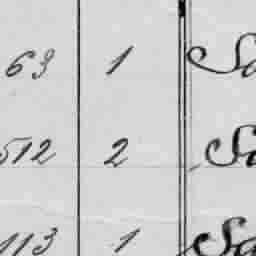 63 1 Sa
512 2 Sa
113 1 Sa